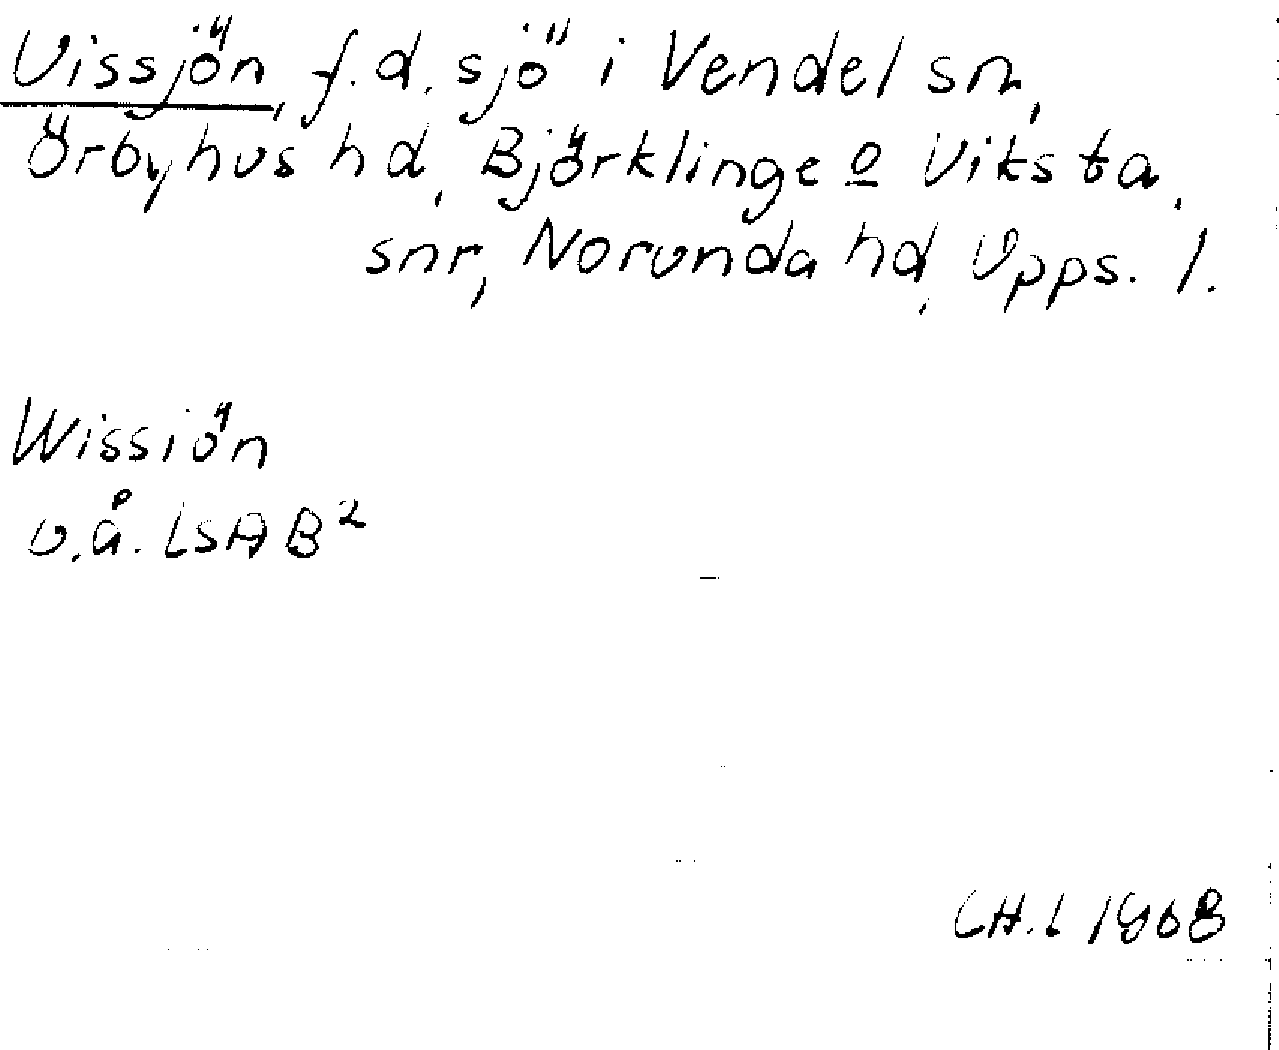 Vissjön, f.d. sjö i Vendel sn,
Örbyhus hd, Björklinge o Viksta,
snr, Norunda hd, Upps. l.
Wissiön
u.å. LSA B²
CH.L 1968